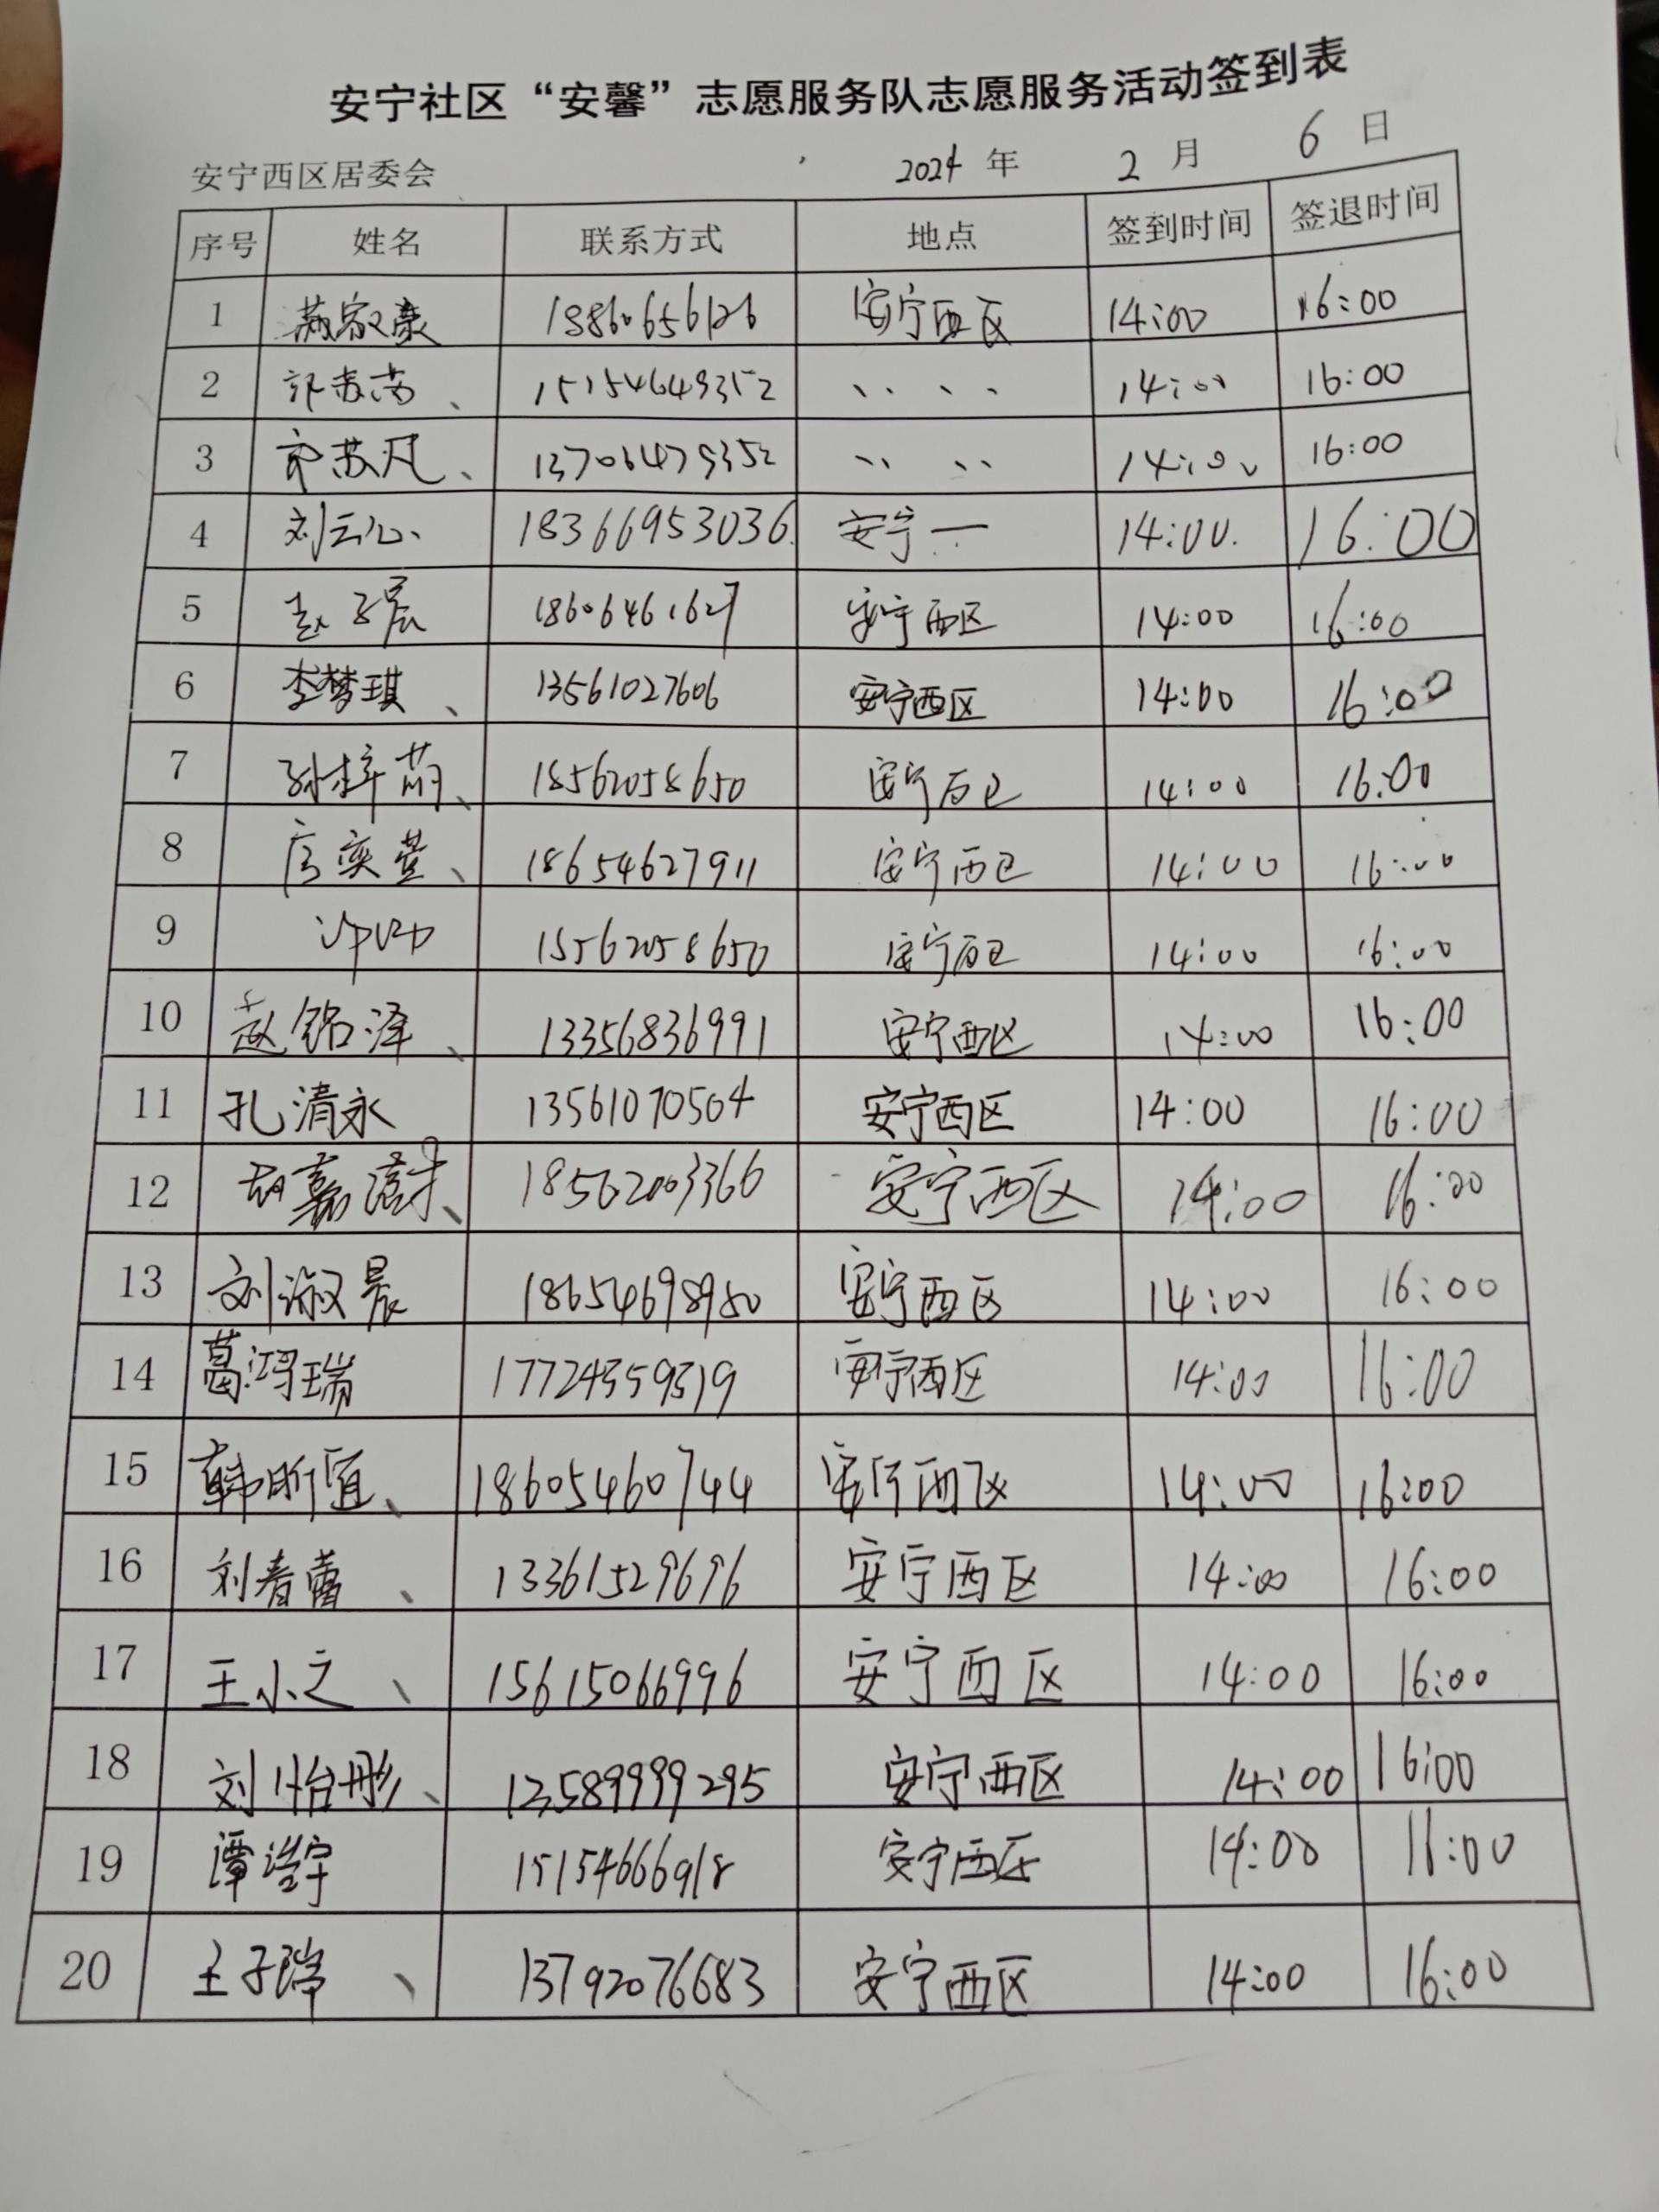 安宁社区“安馨”志愿服务队志愿服务活动签到表
安宁西区居委会 2024 年 2 月 6 日
序号 姓名 联系方式 地点 签到时间 签退时间
1 安宁西区 14:00 16:00
2 15154649352 、、 、、 14:00 16:00
3 苏凡、 13706479352 、、 、、 14:00 16:00
4 刘云心 18366953036 安宁一 14:00 16:00
5 赵子辰 18606461627 安宁西区 14:00 16:00
6 李梦琪、 13561027606 安宁西区 14:00 16:00
7 孙梓萌、 18562058650 安宁西区 14:00 16:00
8 奕萱、 18654627911 安宁西区 14:00 16:00
9 15562058650 安宁西区 14:00 16:00
10 赵铭泽、 13356836991 安宁西区 14:00 16:00
11 孔清永 13561070504 安宁西区 14:00 16:00
12 胡嘉澍、 18562003366 安宁西区 14:00 16:00
13 刘淑晨 18654698980 安宁西区 14:00 16:00
14 葛鸿瑞 17724359319 安宁西区 14:00 16:00
15 韩昕宜、 18605460744 安宁西区 14:00 16:00
16 刘春蕾、 13361529696 安宁西区 14:00 16:00
17 王小之、 15615066996 安宁西区 14:00 16:00
18 刘怡彤、 13589999295 安宁西区 14:00 16:00
19 谭浩宇 15154666918 安宁西区 14:00 16:00
20 王子瑞、 13792076683 安宁西区 14:00 16:00